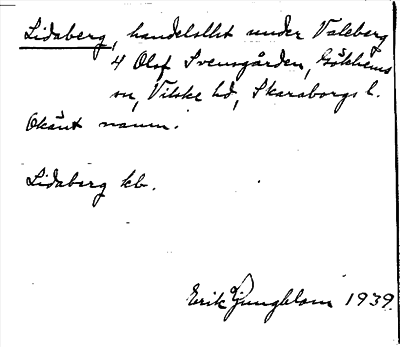 Lidaberg, handelsllst under Valeberg
4 Olof Svensgården, Gökhems
sn, Vilske hd, Skaraborgs l.
Okänt namn.
Lidaberg kb.
Erik Ljungblom 1939.